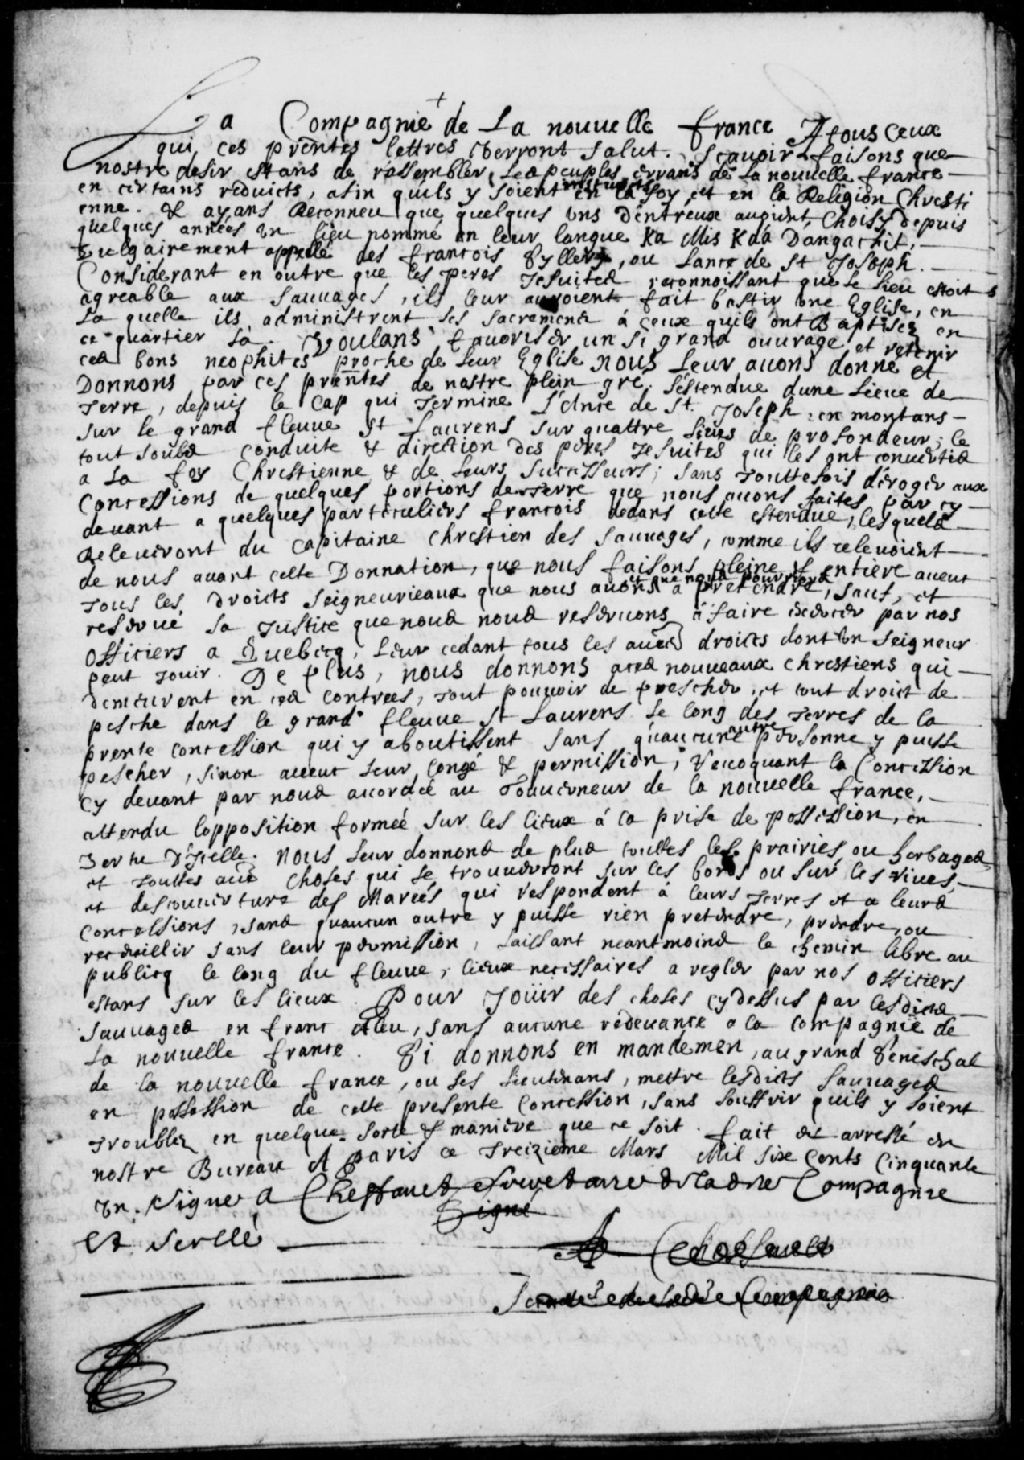 La Compagnie de La nouuelle france A tous ceux
qui ces pñtes lettres verront salut. Scauoir faisons que
nostre desir estans de rassembler Les peuples errans de la nouuelle france
en certains reduicts, afin quils y soient instruits en la foy et en la Religion Chresti
enne. & ayans Reconneu que quelques uns Dentreux auoient Choisy depuis
quelques années un lieu nommé en leur langue Ka Mis Kda Dangachit,
vulgairement appellé des francois Syllery, ou Lance de St Joseph.
Considerant en outre que les peres Jesuites reconnoissant que le lieu estoit
agreable aux sauuages, ils leur auroient fait bastir une Eglise, en
La quelle ils administrent les sacremens à ceux quils ont Baptisez en
ce quartier là. Voulans fauoriser un si grand ouurage et retenir
ces bons neophites proche de leur Eglise nous Leur auons donné et
Donnons par ces pñtes de nostre plein gré L'estendue dune Lieue de
Terre, depuis le Cap qui Termine L'Ance de St. Joseph en montans
sur le grand fleuue St Laurens sur quattre lieues de profondeur, le
tout soubs conduite & direction des peres Jesuites qui les ont conuertis
a La foy Chrestienne & de leurs successeurs; sans Touttefois déroger aux
Concessions de quelques portions de terre que nous auons faites par cy
deuant a quelques particuliers francois dedans cette estendue, lesquels
Releueront du Capitaine Chrestien des Sauuages, comme ils releuoient
de nous auant cette Donnation, que nous faisons pleine & entiere auecq
Tous les Droicts seigneurieaux que nous auons et que nous pourrions pretendre, sauf, et
reserué la Justice que nous nous reseruons à faire exercer par nos
Officiers a Quebecq, Leur cedant tous les autres droicts dont un seigneur
peut Jouir. De plus, nous donnons aces nouueaux chrestiens qui
demeurent en ces contrées, tout pouuoir de pescher, et tout droict de
pesche dans le grand fleuue St Laurens le long des Terres de la
pñente concession qui y aboutissent sans quaucune autre personne y puisse
pescher, sinon auecq leur congé & permission, reuoquant la Concession
cy deuant par nous accordée au Gouuerneur de la nouuelle france,
attendu lopposition formeé sur les lieux á la prise de possession, en
vertu D'icelle. nous leur donnons de plus touttes les prairies ou herbages
et Touttes autres choses qui se trouueront sur les bords ou sur les riues
et descouuerture des Mareés qui respondent á leurs Terres et a leurs
Concessions, sans quaucun autre y puisse rien pretendre, prendre ou
receuillir sans leur permission, Laissant neantmoins le chemin libre au
publicq le long du fleuue, lieux necessaires a regler par nos Officiers
estans sur les lieux. Pour Joüir des choses cy dessus par lesdicts
sauuages en franc Aleu, sans aucune redeuance a la Compagnie de
La nouuelle france. Si donnons en mandemen, au grand seneschal
de la nouuelle france, ou ses lieutenans, mettre lesdicts sauuages
en possession de cette presente Concession, sans souffrir quils y soient
Troublez en quelque sorte & maniere que ce soit. fait et arresté en
nostre Bureau A paris ce Treizieme Mars Mil Six Cents Cinquante
un. signé A Cheffault secretaire de ladite Compagnie
Signé
Et scellé
A Cheffault
Secretre de ladte Compagnie